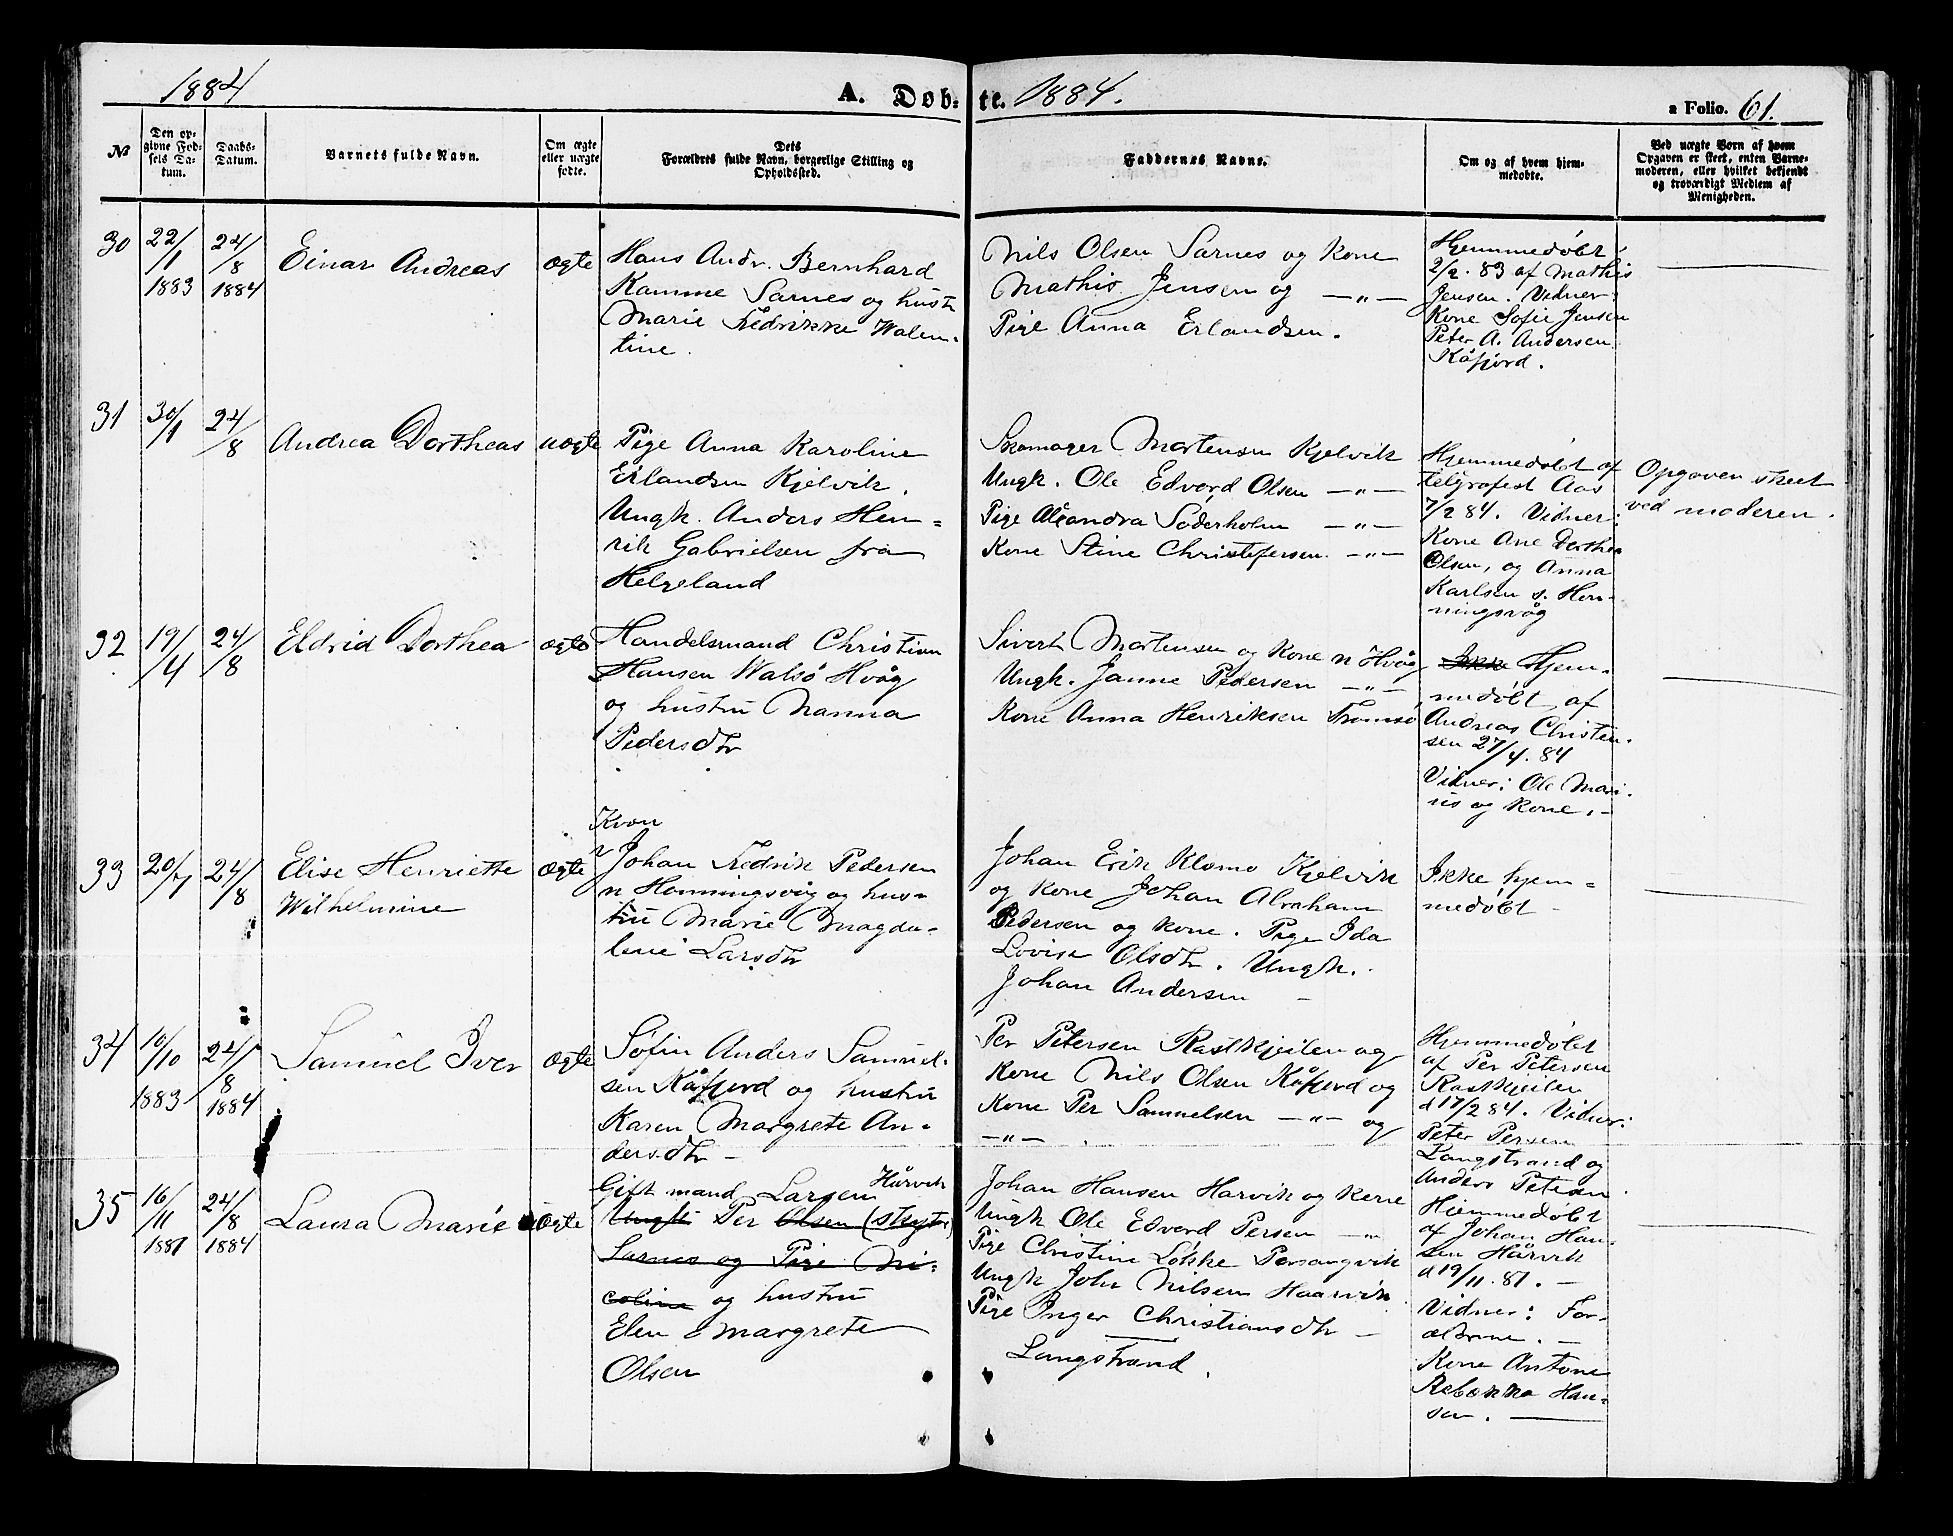 1884
A. Døb-
te. 1884.
a Folio. 61.
№
Den op-
givne Fød-
sels Da-
tum.
Daabs-
Datum.
Barnets fulde Navn.
Om ægte
eller uægte
fødte.
Dets
Forældres fulde Navn, borgerlige Stilling og
Opholdssted.
Faddernes Navne.
Om og af hvem hjem-
medøbte.
Ved uægte Børn af hvem
Opgaven er skeet, enten Barne-
moderen, eller hvilket bekjendt
og troværdigt Medlem af
Menigheden.
30
22/1
1883
24/8
1884
Einar Andreas
ægte
Hans Andr. Bernhard
Kamme Sarnes og hust
Marie Fredrikke Walen-
tine.
Nils Olsen Sarnes og Kone
Mathis Jensen og —„—
Pige Anna Erlandsen.
Hjemmedøbt
2/2. 83 af Mathis
Jensen. Vidner:
Kone Sofie Jensen
Peter A. Andersen
Kåfjord.
31
30/1
24/8
Andrea Dortheas
uægte
Pige Anna Karoline
Erlandsen Kjelvik.
Ungk. Anders Hen-
rik Gabrielsen fra
Helgeland
Skomager Mortensen Kjelvik
Ungk. Ole Edvard Olsen —„—
Pige Alexandra Søderholm —„—
Kone Stine Christofersen —„—
Hjemmedøbt af
telgrafest Aas
7/2 84. Vidner:
Kone Ane Dorthea
Olsen, og Anna
Karlsen s. Hon-
ningsvåg
Opgaven skeet
ved moderen.
32
19/4
24/8
Eldrid Dorthea
ægte
Handelsmand Christian
Hansen Walsø Hvåg
og hustru Nanna
Pedersdtr
Sivert Mortensen og Kone n Hvåg
Ungk. Janne Pedersen —„—
Kone Anna Henriksen Tromsø
Ikke Hjem-
medøbt af
Andreas Christen-
sen 27/4. 84
Vidner: Ole Mari-
us og Kone.-
33
20/7
24/8
Elise Henriette
Wilhelmine
ægte
Kvæn
Johan Fredrik Pedersen
n Honningsvåg og hus-
tru Marie Magda-
lene Larsdtr
Johan Erik Klomo Kjelvik
og Kone Johan Abraham
Pedersen og Kone. Pige Ida
Lovise Olsdtr. Ungk.
Johan Andersen —
Ikke hjem-
medøbt —
34
10/10
1883
24/8
1884
Samuel Iver
ægte
Søfin Anders Samuel-
sen Kåfjord og hustru
Karen Margrete An-
dersdtr —
Per Petersen Rastkjeilen og
Kone Nils Olsen Kåfjord og
Kone Per Samuelsen —„— og
—„— .
Hjemmedøbt
af Per Petersen
Rastkjeilen
d 17/2 84. Vidner:
Peter Persen
Langstrand og
Anders Petersen.
35
16/11
1881
24/8
1884
Laura Marie
ægte
Gift mand Larsen Hårvik
Ungk Per Olsen (Skyts)
Sarnes og Pige Ni-
coline og hustru
Elen Margrete
Olsen
Johan Hansen Harvik og Kone
Ungk Ole Edvard Persen —„—
Pige Christine Løkke Porsangvik
Ungk John Nilsen Haarvik
Pige Inger Christiansdtr —
Langstrand.
Hjemmedøbt
af Johan Han-
sen Hårvik
d 19/11. 81. —
Vidner: For-
ældrene. —
Kone Antone
Rebekka Han-
sen. —